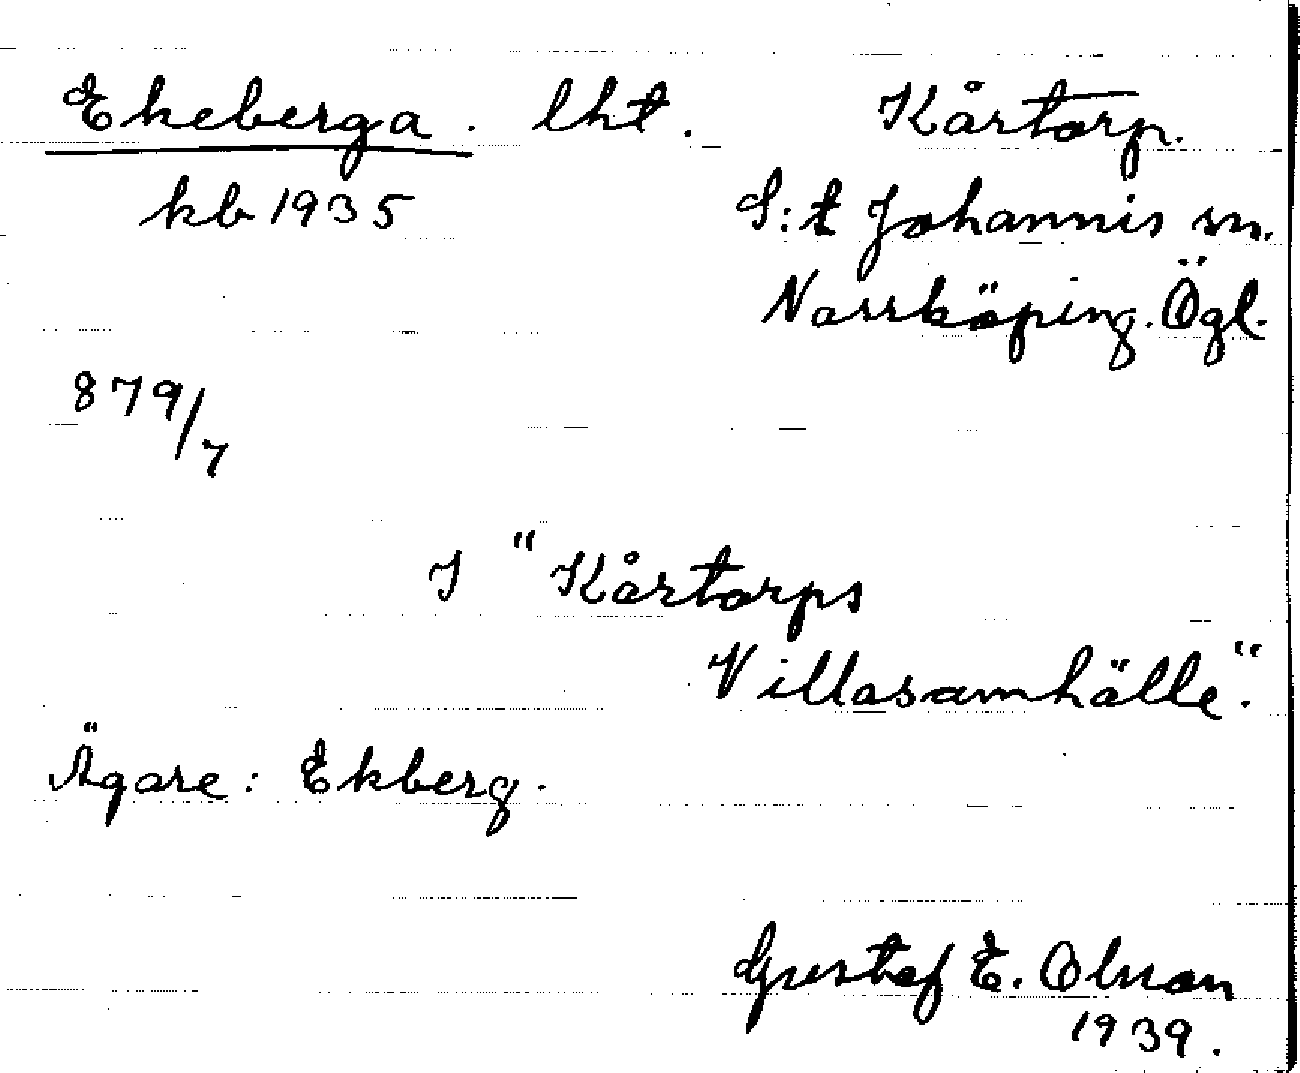 Ekeberga. lht. Kårtorp.
kb 1935 S:t Johannis sn.
Norrköping. Ögl.
879/7
I "Kårtorps
Villasamhälle."
Ägare: Ekberg.
Gustaf E. Olsson
1939.